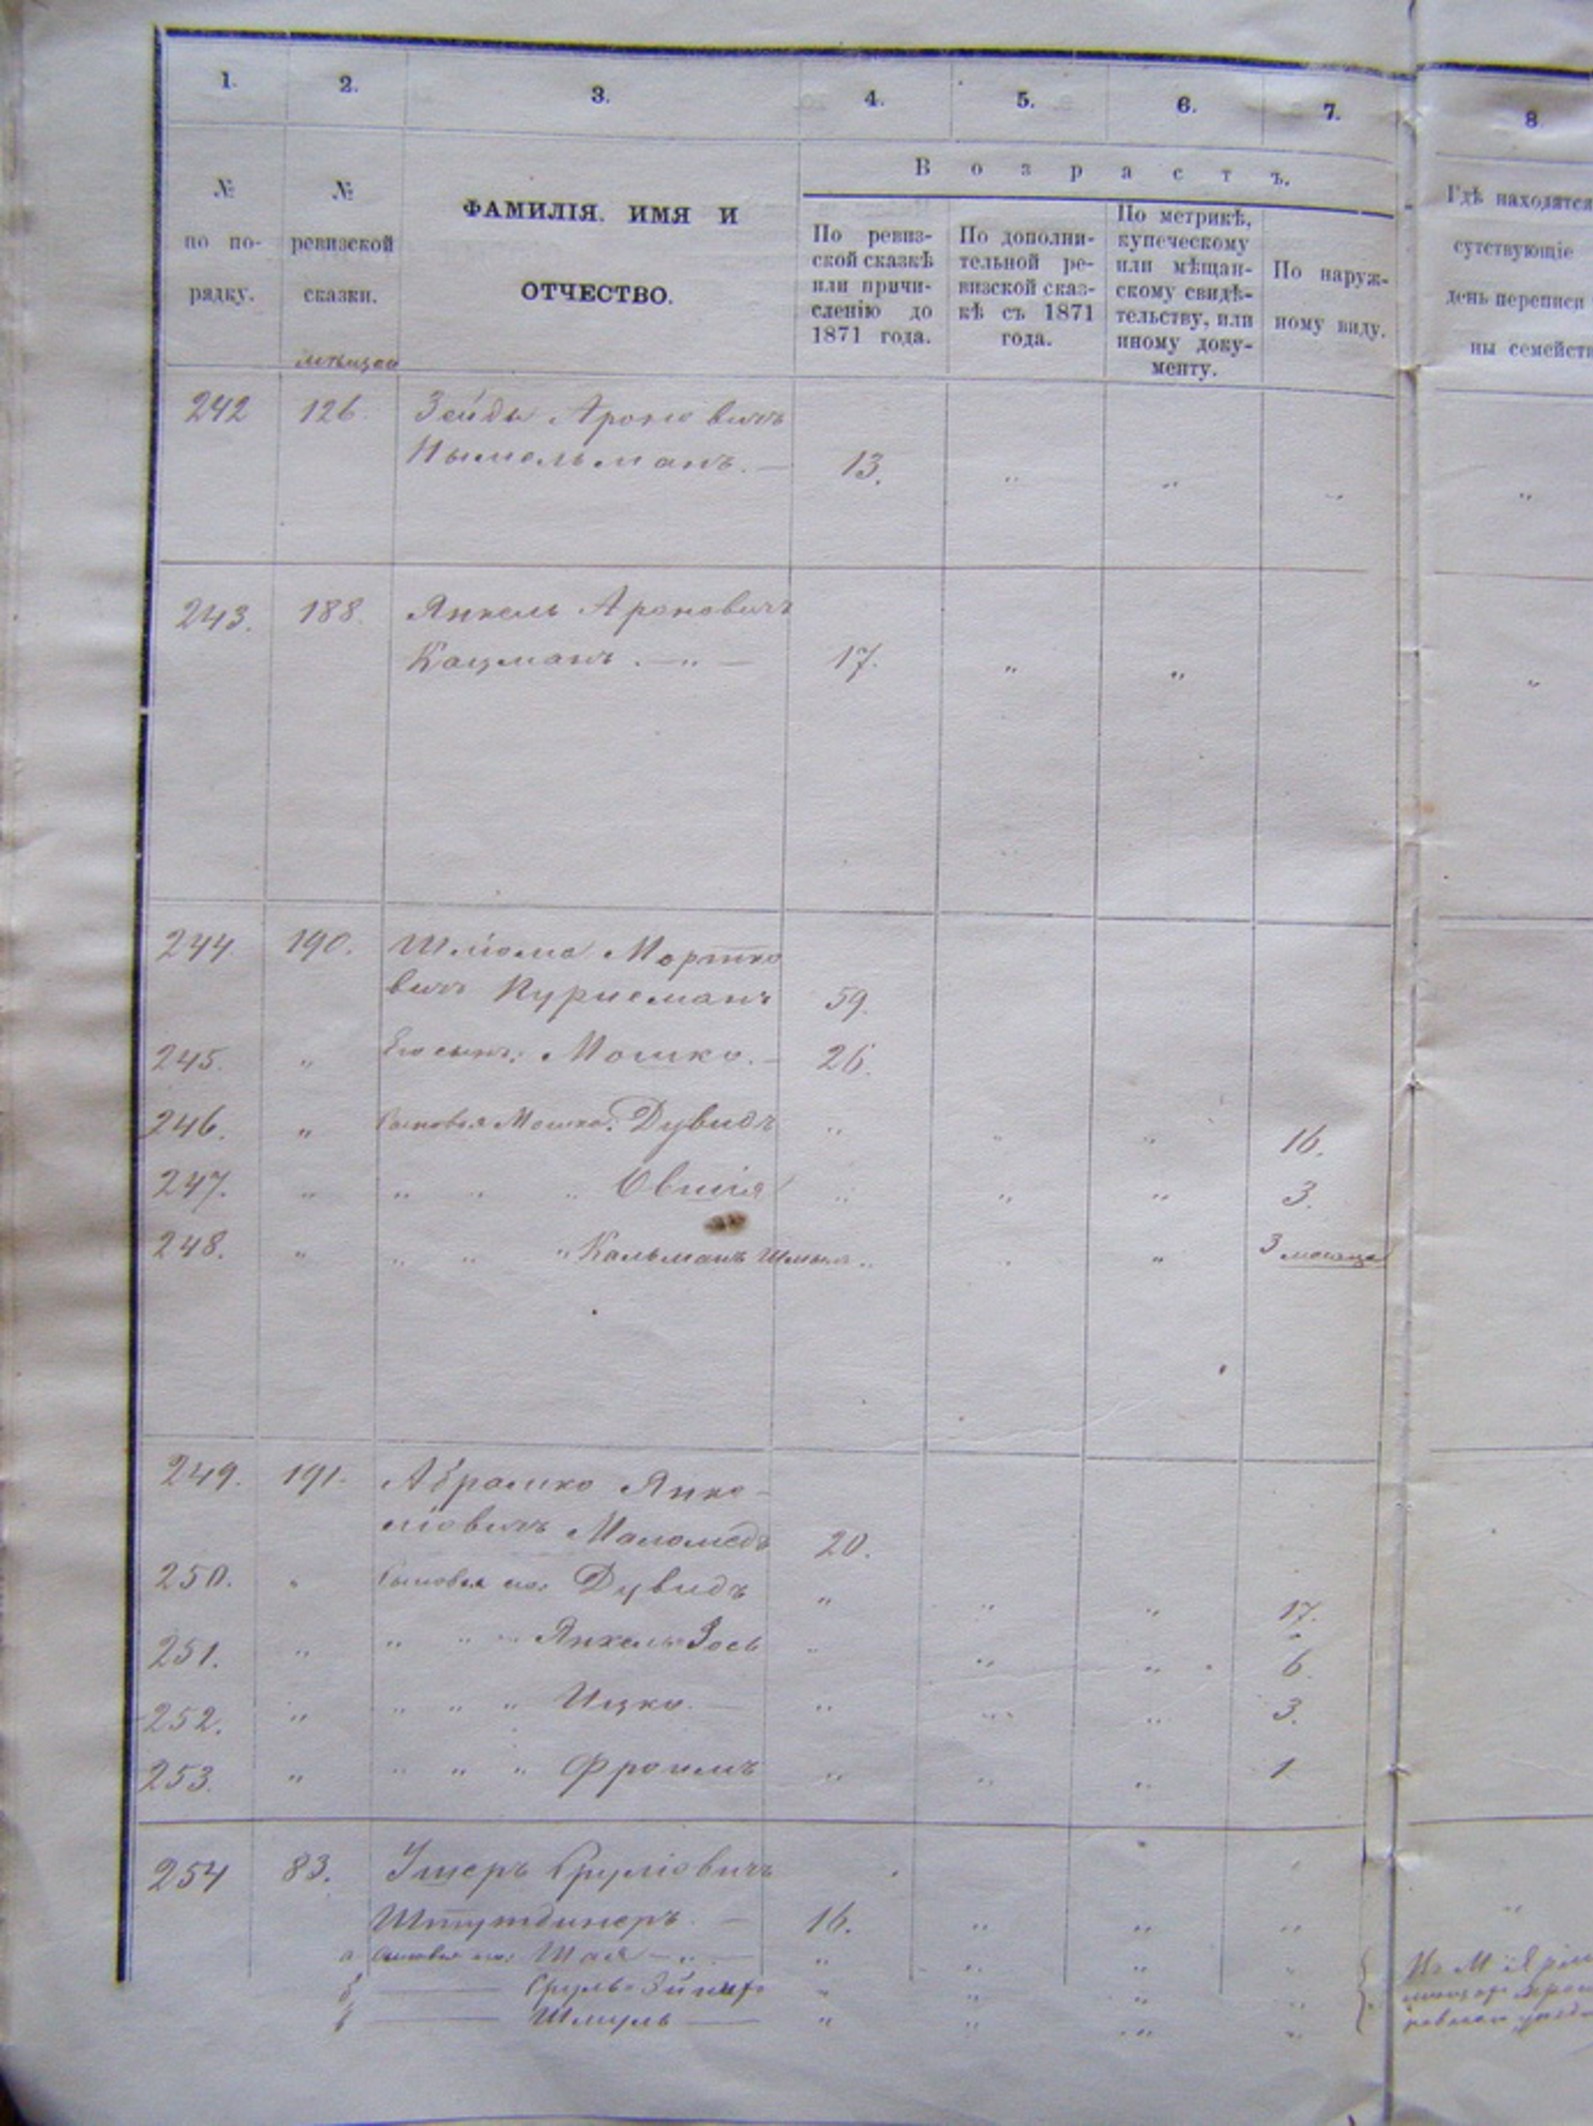 1. 2. 3. 4. 5. 6. 7. 8
Возрастъ.
№
по по-
рядку.
№
ревизской
сказки.
мѣщан
ФАМИЛІЯ. ИМЯ И
ОТЧЕСТВО.
По ревиз-
ской сказкѣ
или причи-
сленію до
1871 года.
По дополни-
тельной ре-
визской сказ-
кѣ съ 1871
года.
По метрикѣ,
купеческому
или мѣщан-
скому свидѣ-
тельству, или
иному доку-
менту.
По наруж-
ному виду.
Гдѣ находятся
сутствующіе
день переписи
ны семейств
242 126. Зейдъ Ароновичъ
Нымельманъ. — 13. „ „ „ „
243. 188. Янкель Ароновичъ
Кацманъ. — „ — 17. „ „ „
244. 190. Шліома Мортко
вичъ Курцеманъ 59.
245. „ Его сынъ: Мошко. — 26.
246. „ Сыновья Мошка: Дувидъ „ „ „ 16.
247. „ „ „ „ Овшія „ „ „ 3.
248. „ „ „ „ Кальманъ Шмыль „ „ „ 3 мѣсяца
249. 191. Абрамко Янке-
ліовичъ Маломедъ 20.
250. „ Сыновья его: Дувидъ „ „ „ 17.
251. „ „ „ „ Янкель-Зось „ „ „ 6.
252. „ „ „ „ Ицко. — „ „ „ 3.
253. „ „ „ „ Фроимъ „ „ „ 1
254 83. Ушеръ Сруліовичъ
— 16. „ „ „ „
а Сыновья его: Шая — „ — „ „ „ „
б — Сруль- „ „ „ „
в — Шмуль — „ „ „ „